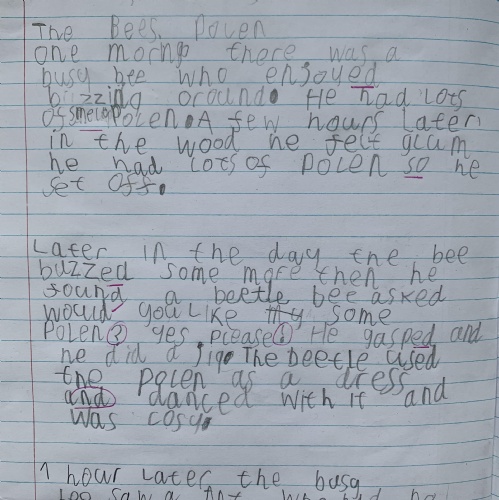 The Bees. Polen
one morng there was a
busy bee who enjoyed
buzzing around. He had lots
of Polen. A few hours later
in the wood he felt glum
he had lots of polen so he
set off.
Later in the day the bee
buzzed some more then he
found a beetle bee asked
would you like my some
Polen? yes please! He gasped and
he did a jig. The beetle used
the polen as a dress
and danced with it and
was cosy.
1 hour later the busy
saw a